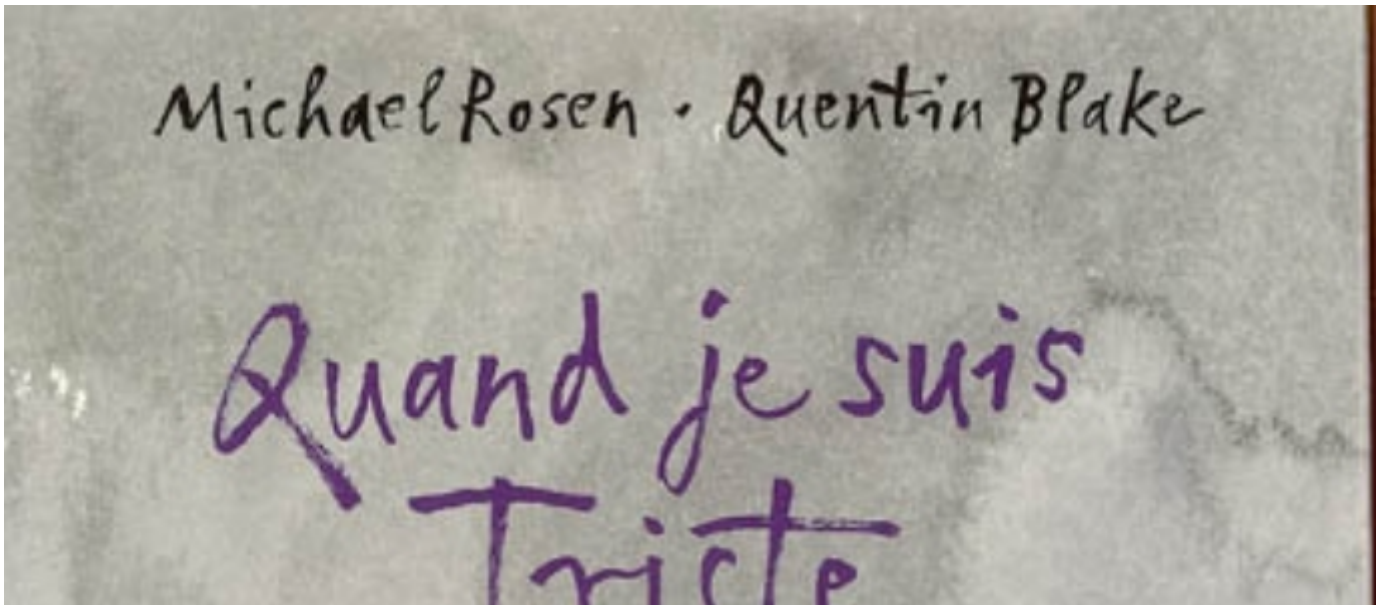 Michael Rosen · Quentin Blake
Quand je suis
Triste